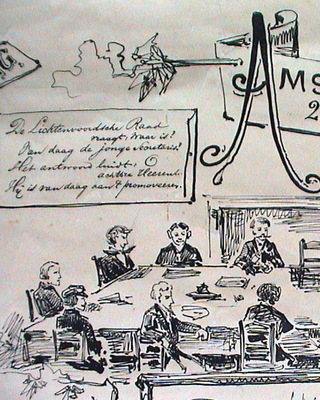 AMS
2
De Lichtenvoordsche Raad
vraagt: Waar is?
Van daag de jonge Secretaris?
Het antwoord luidt: O
achtbre Heeren!
Hij is van daag aan't promoveeren.